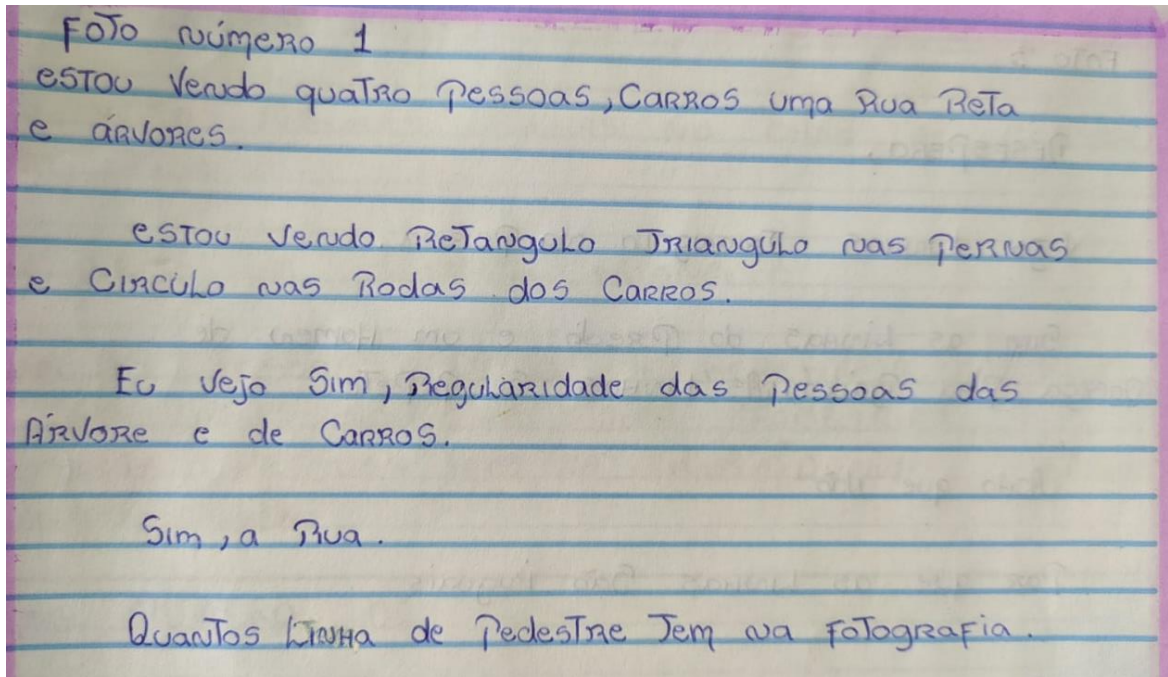 Foto número 1
estou vendo quatro Pessoas, Carros uma Rua Reta
e árvores.
estou vendo Retangulo Triangulo nas Pernas
e Circulo nas Rodas dos Carros.
Eu vejo Sim, Regularidade das Pessoas das
Árvore e de Carros.
Sim, a Rua.
Quantos Linha de Pedestre Tem na Fotografia.